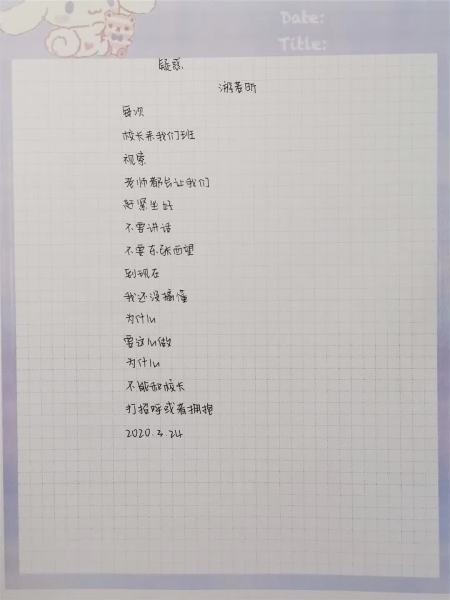 Date:
Title:
疑惑
游若昕
每次
校长来我们班
视察
老师都会让我们
赶紧坐好
不要讲话
不要东张西望
到现在
我还没搞懂
为什么
要这么做
为什么
不能和校长
打招呼或者拥抱
2020.3.24